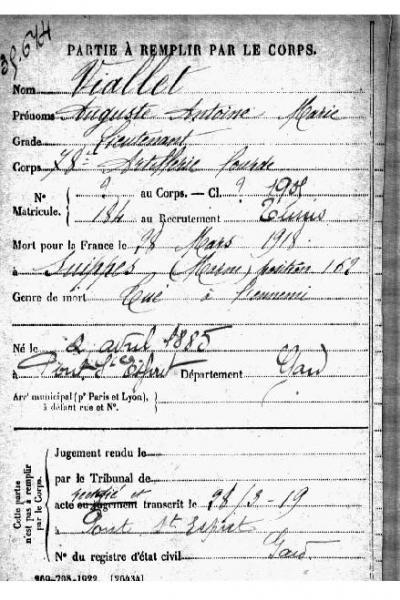 39.674
PARTIE À REMPLIR PAR LE CORPS.
Nom Viallet
Prénoms Auguste Antoine Marie
Grade Lieutenant
Corps 78e Artillerie Lourde
N° Matricule. { ? au Corps. — Cl. ? 1905
184 au Recrutement Tunis
Mort pour la France le 28 Mars 1918
à Suippes, (Marne) position 162
Genre de mort Tué à l'ennemi
Né le 2 avril 1885
à Pont St Esprit Département Gard
Arrt municipal (pr Paris et Lyon),
à défaut rue et N°.
Cette partie
n'est pas à remplir
par le Corps.
Jugement rendu le
par le Tribunal de
acte ou jugement transcrit le 28/3-19
à Pont St Esprit
Gard
N° du registre d'état civil